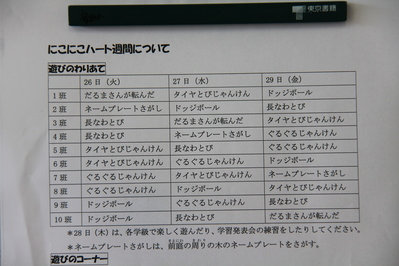 東京書籍
にこにこハート週間について
遊びのわりあて
26日（火） 27日（水） 29日（金）
1班 だるまさんが転んだ タイヤとびじゃんけん ドッジボール
2班 ネームプレートさがし ドッジボール 長なわとび
3班 長なわとび だるまさんが転んだ タイヤとびじゃんけん
4班 長なわとび ネームプレートさがし ぐるぐるじゃんけん
5班 タイヤとびじゃんけん 長なわとび ぐるぐるじゃんけん
6班 タイヤとびじゃんけん ぐるぐるじゃんけん ドッジボール
7班 ぐるぐるじゃんけん タイヤとびじゃんけん ネームプレートさがし
8班 ぐるぐるじゃんけん ドッジボール タイヤとびじゃんけん
9班 ドッジボール ぐるぐるじゃんけん 長なわとび
10班 ドッジボール 長なわとび だるまさんが転んだ
＊28日（木）は、各学級で楽しく遊んだり、学習発表会の練習をしたりしてください。
＊ネームプレートさがしは、前庭の周りの木のネームプレートをさがす。
遊びのコーナー